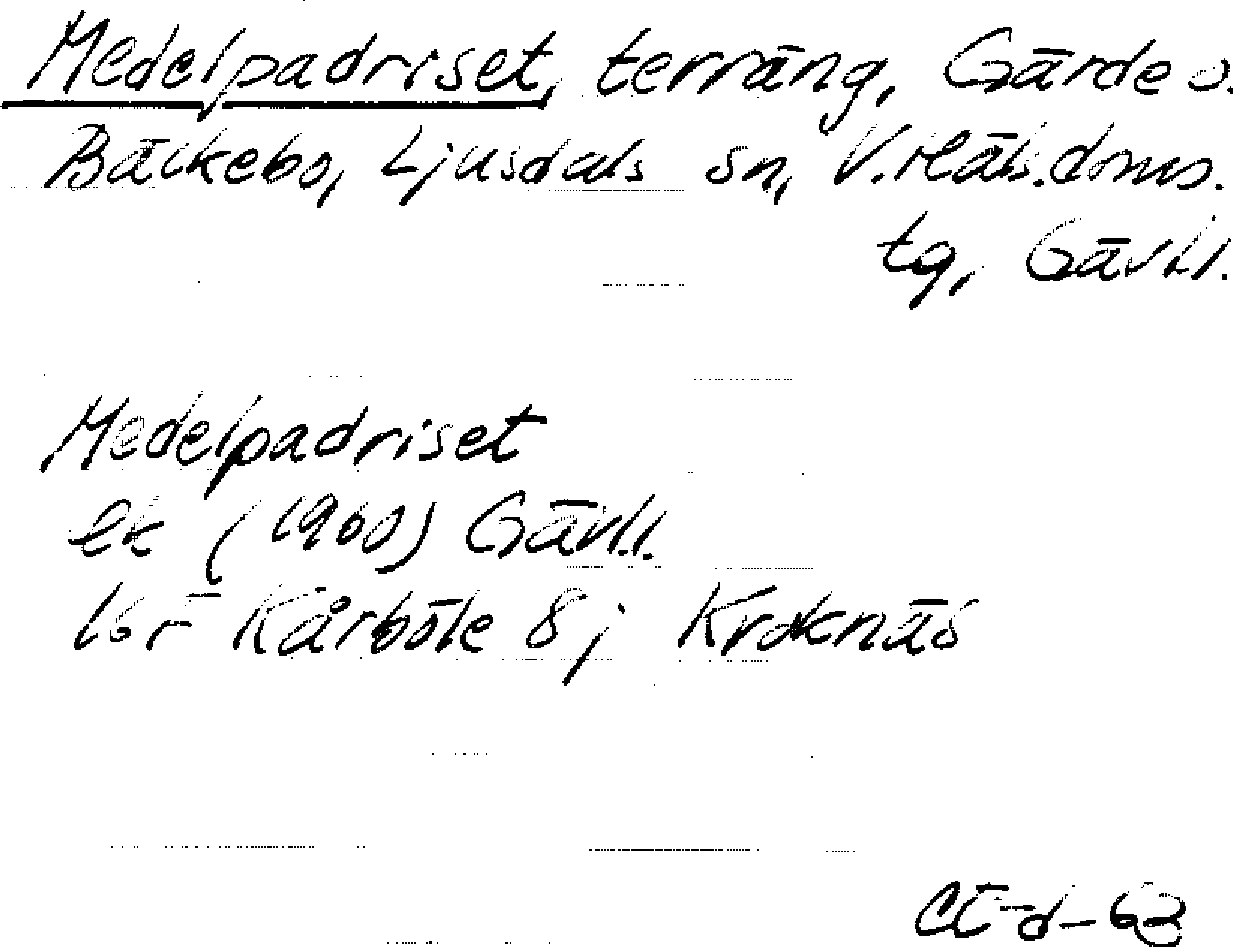 Medelpadriset, terräng, Gärde o.
Bäckebo, Ljusdals sn, V. Häls. doms.
tg, Gävl.l.
Medelpadriset
ek (1960) Gävl.l.
16 r Kårböle 8 j Kroknäs